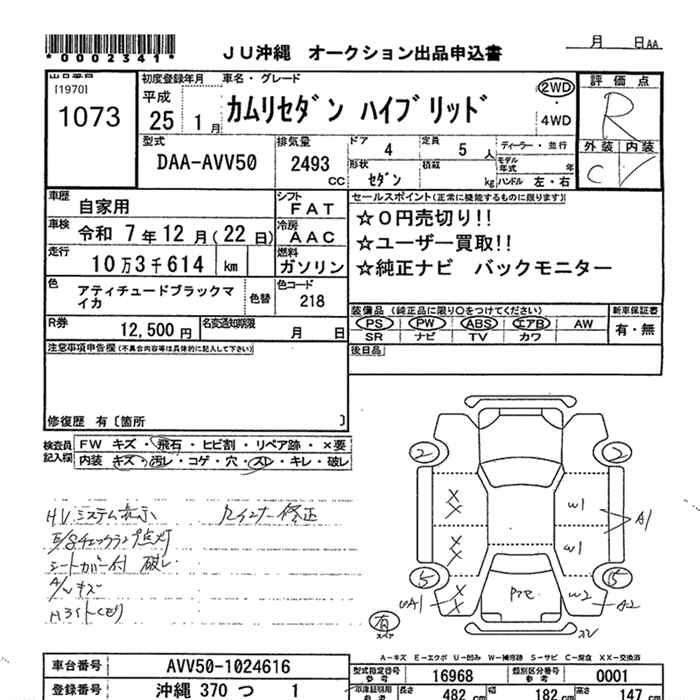 *0002341*
JU沖縄 オークション出品申込書
月 日AA
出品番号
[1970]
1073
初度登録年月
平成
25 1月
車名・グレード
カムリセダン ハイブリッド
2WD
・
4WD
評価点
R
外装 内装
C
型式
DAA-AVV50
排気量
2493
CC
ドア
4
定員
5 人
ディーラー・並行
形状
セダン
積載
kg
モデル年式 年
ハンドル 左・右
車歴
自家用
シフト
FAT
車検
令和 7年12月(22日)
冷房
AAC
走行
10万3千614 km
燃料
ガソリン
色
アティチュードブラックマイカ
色替
色コード
218
R券
12,500円
名変通知期限
月 日
セールスポイント(正常に機能するものに限ります)
☆0円売切り!!
☆ユーザー買取!!
☆純正ナビ バックモニター
装備品 (純正品に限り○をつけてください)
PS PW ABS エアB AW
SR ナビ TV カワ
新車保証書
有・無
後日品
注意事項申告欄(不具合内容等は具体的に記入して下さい)
修復歴 有〔箇所 〕
検査員記入欄
FW キズ・飛石・ヒビ割・リペア跡・×要
内装 キズ・汚レ・コゲ・穴・スレ・キレ・破レ
HVシステム表示
E/gチェックランプ点灯
シートカバー付 破レ
A/Wキズ
Hライトくもり
Rインナー修正
2 2
X X
W1
A1
X X
W1
5 5
UA1
X X
Pre
W2
A2
有
XV
A－キズ E－エクボ U－凹み W－補修跡 S－サビ C－腐食 XX－交換済
車台番号
AVV50-1024616
登録番号
沖縄 370 つ 1
型式指定番号
参考
16968
類別区分番号
参考
0001
車庫証明用
長さ
482 cm
幅
182 cm
高さ
147